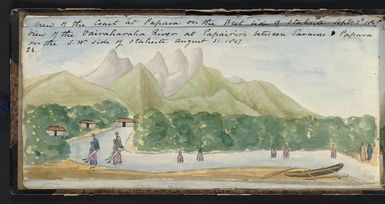 View of the Coast at Papara on the West side of Otaheite Sept. 2d 1847
View of the Vairaharaha River at Papeiriri between Taravao & Papara
on the S.W. side of Otaheite August 31. 1847